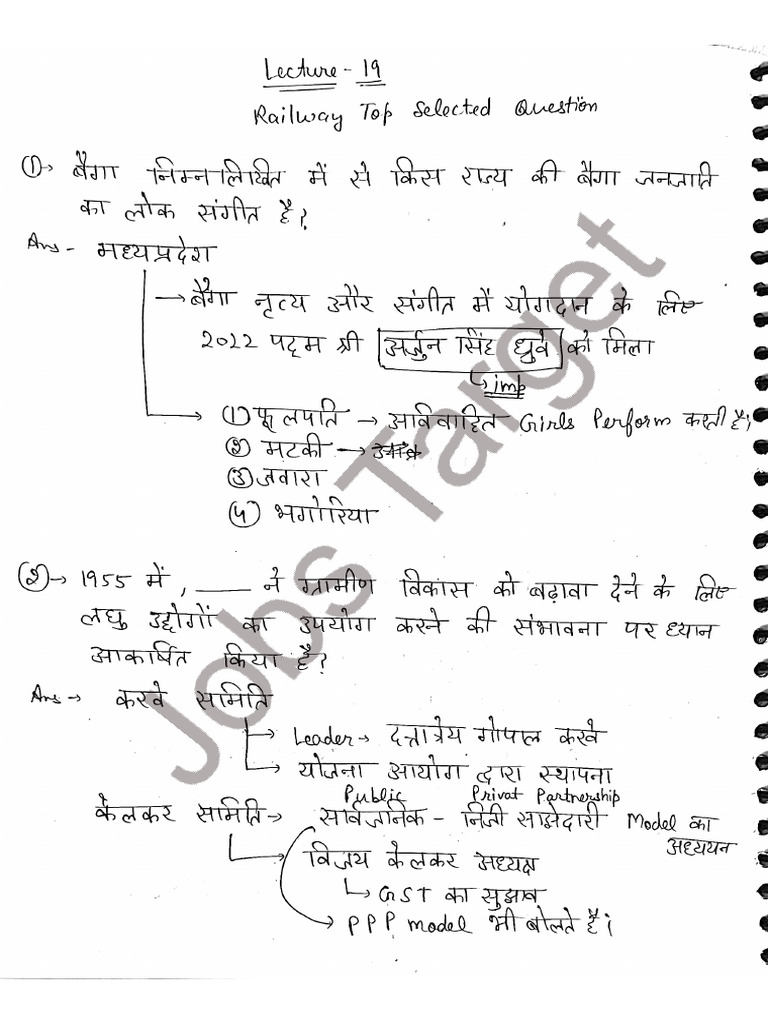 Lecture - 19
Railway Top Selected Question
① → बैगा निम्नलिखित में से किस राज्य की बैगा जनजाति
का लोक संगीत है?
Ans - मध्यप्रदेश
→ बैगा नृत्य और संगीत में योगदान के लिए
2022 पद्म श्री अर्जुन सिंह धुर्वे को मिला
↳ imp
① फूलपति → अविवाहित Girls Perform करती है।
② मटकी →
③ जवारा
④ भगोरिया
② → 1955 में, ____ ने ग्रामीण विकास को बढ़ावा देने के लिए
लघु उद्योगों का उपयोग करने की संभावना पर ध्यान
आकर्षित किया है?
Ans → करवे समिति
→ Leader → दत्तात्रेय गोपाल करवे
→ योजना आयोग द्वारा स्थापना
Public Privat Partnership
केलकर समिति → सार्वजनिक - निजी साझेदारी Model का
अध्ययन
→ विजय केलकर अध्यक्ष
↳ GST का सुझाव
→ PPP model भी बोलते है।
Jobs Target